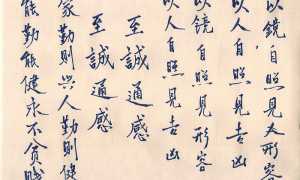 以鏡自照見形容
以人自照見吉凶
以鏡自照見形容
以人自照見吉凶
至誠通感
至誠通感
家勤則興人勤則健
能勤能健永不貧賤